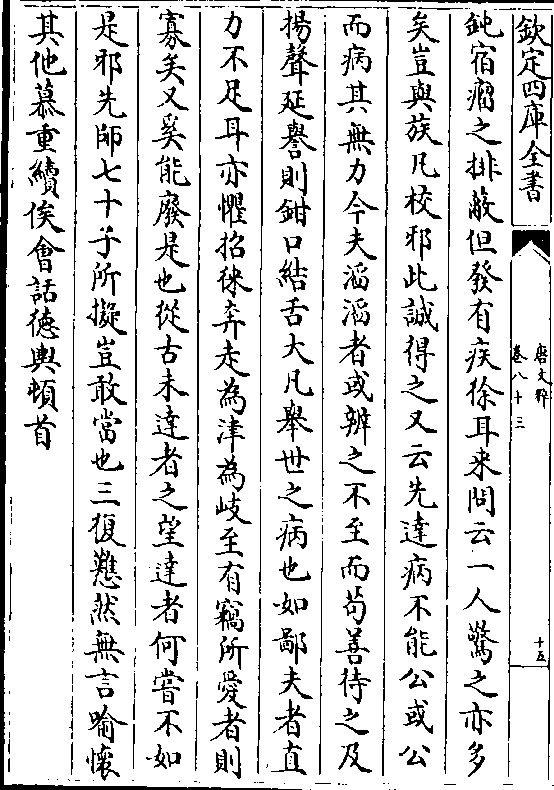 欽定四庫全書
唐文粹
卷八十三
十五
鈍宿瘤之排蔽但發有疾徐耳来問云一人驚之亦多
矣豈與族凡校邪此誠得之又云先達病不能公或公
而病其無力今夫滔滔者或辨之不至而苟善待之及
揚聲延譽則鉗口結舌大凡舉世之病也如鄙夫者直
力不足耳亦懼招徠奔走為津為岐至有竊所愛者則
寡矣又奚能廢是也從古未達者之望達者何嘗不如
是邪先師七十子所擬豈敢當也三復慙然無言喻懷
其他慕重續俟會話德輿頓首